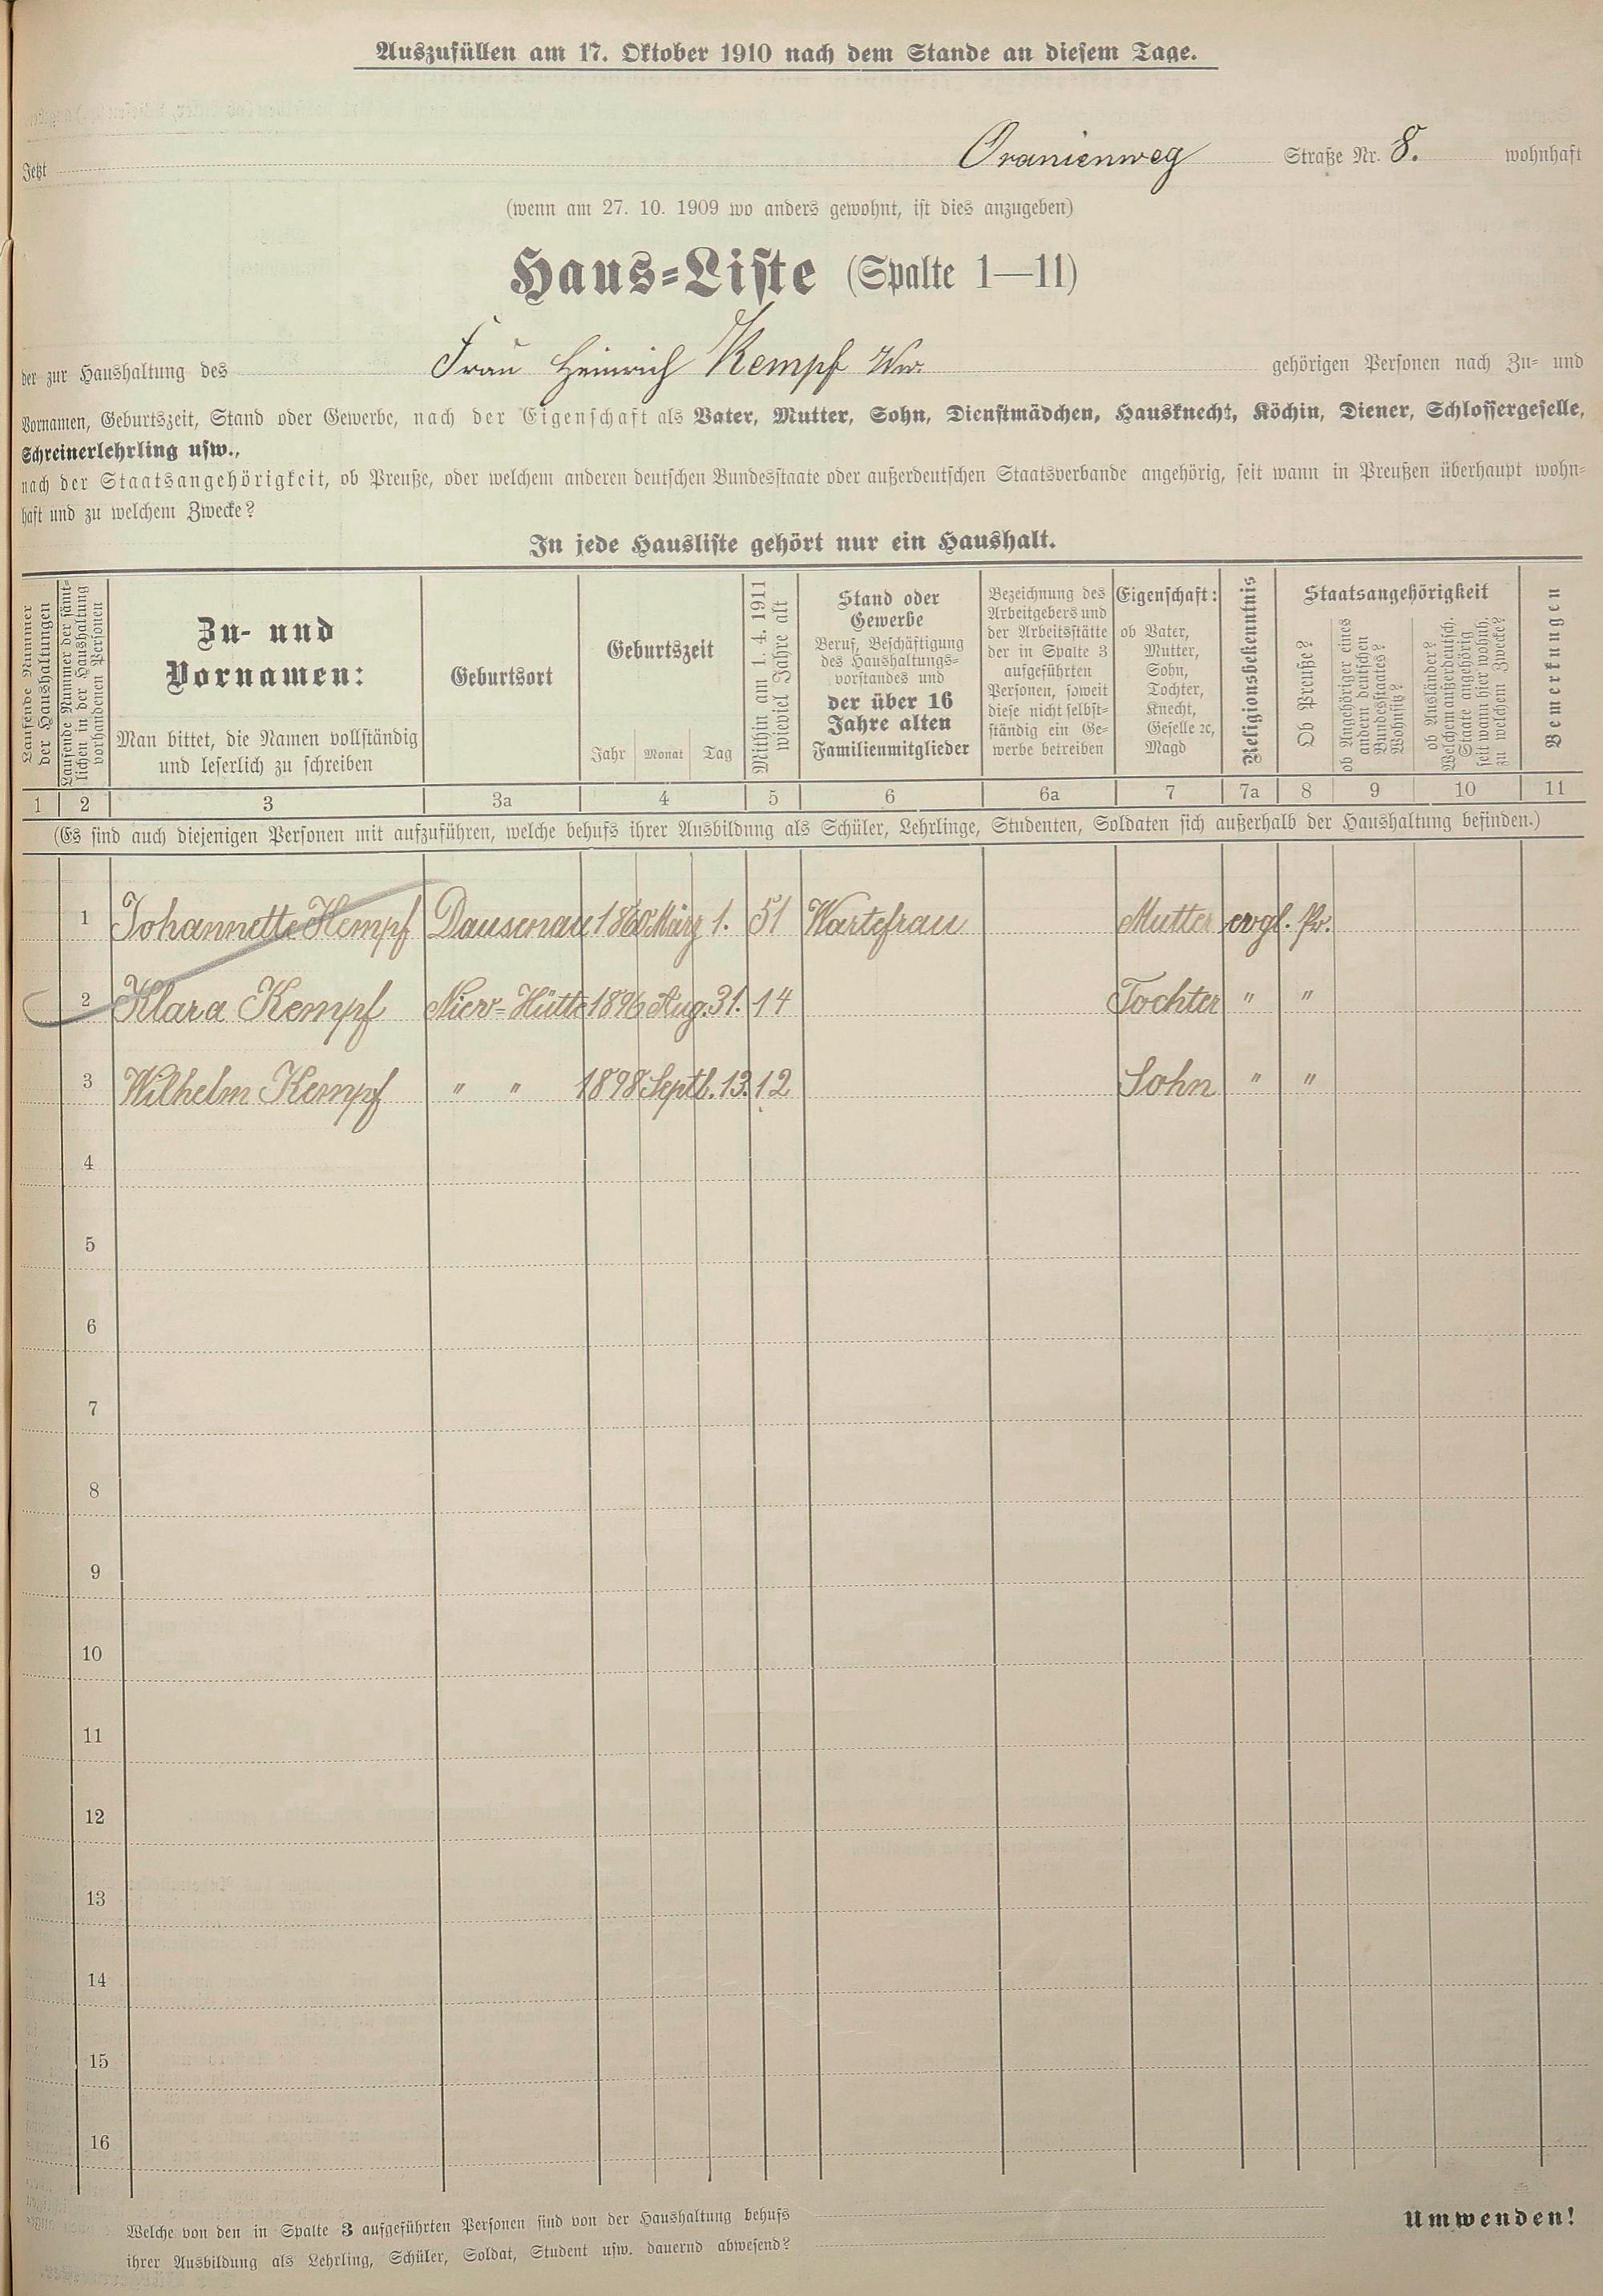 Auszufüllen am 17. Oktober 1910 nach dem Stande an diesem Tage.
Jetzt Oranienweg Straße Nr. 8. wohnhaft
(wenn am 27. 10. 1909 wo anders gewohnt, ist dies anzugeben)
Haus-Liste (Spalte 1—11)
der zur Haushaltung des Frau Heinrich Kempf Ww. gehörigen Personen nach Zu- und
Vornamen, Geburtszeit, Stand oder Gewerbe, nach der Eigenschaft als Vater, Mutter, Sohn, Dienstmädchen, Hausknecht, Köchin, Diener, Schlossergeselle,
Schreinerlehrling usw.,
nach der Staatsangehörigkeit, ob Preuße, oder welchem anderen deutschen Bundesstaate oder außerdeutschen Staatsverbande angehörig, seit wann in Preußen überhaupt wohn-
haft und zu welchem Zwecke?
In jede Hausliste gehört nur ein Haushalt.
Laufende Nummer
der Haushaltungen
Laufende Nummer der sämt-
lichen in der Haushaltung
vorhandenen Personen
Zu- und
Vornamen:
Man bittet, die Namen vollständig
und leserlich zu schreiben
Geburtsort
Geburtszeit
Jahr Monat Tag
Mithin am 1. 4. 1911
wieviel Jahre alt
Stand oder
Gewerbe
Beruf, Beschäftigung
des Haushaltungs-
vorstandes und
der über 16
Jahre alten
Familienmitglieder
Bezeichnung des
Arbeitgebers und
der Arbeitsstätte
der in Spalte 3
aufgeführten
Personen, soweit
diese nicht selbst-
ständig ein Ge-
werbe betreiben
Eigenschaft:
ob Vater,
Mutter,
Sohn,
Tochter,
Knecht,
Geselle ꝛc,
Magd
Religionsbekenntnis
Staatsangehörigkeit
Ob Preuße?
ob Angehöriger eines
andern deutschen
Bundesstaates?
Wohnsitz?
ob Ausländer?
Welchem außerdeutsch.
Staate angehörig
seit wann hier wohnh.
zu welchem Zwecke?
Bemerkungen
1 2 3 3a 4 5 6 6a 7 7a 8 9 10 11
(Es sind auch diejenigen Personen mit aufzuführen, welche behufs ihrer Ausbildung als Schüler, Lehrlinge, Studenten, Soldaten sich außerhalb der Haushaltung befinden.)
1 Johannette Kempf Dausenau 1860 März 1. 51 Wartefrau Mutter evgl. Pr.
2 Klara Kempf Niev-Hütte 1896 Aug. 31. 14 Tochter " "
3 Wilhelm Kempf " " 1898 Septb. 13. 12 Sohn " "
4
5
6
7
8
9
10
11
12
13
14
15
16
Welche von den in Spalte 3 aufgeführten Personen sind von der Haushaltung behufs
ihrer Ausbildung als Lehrling, Schüler, Soldat, Student usw. dauernd abwesend?
Umwenden!